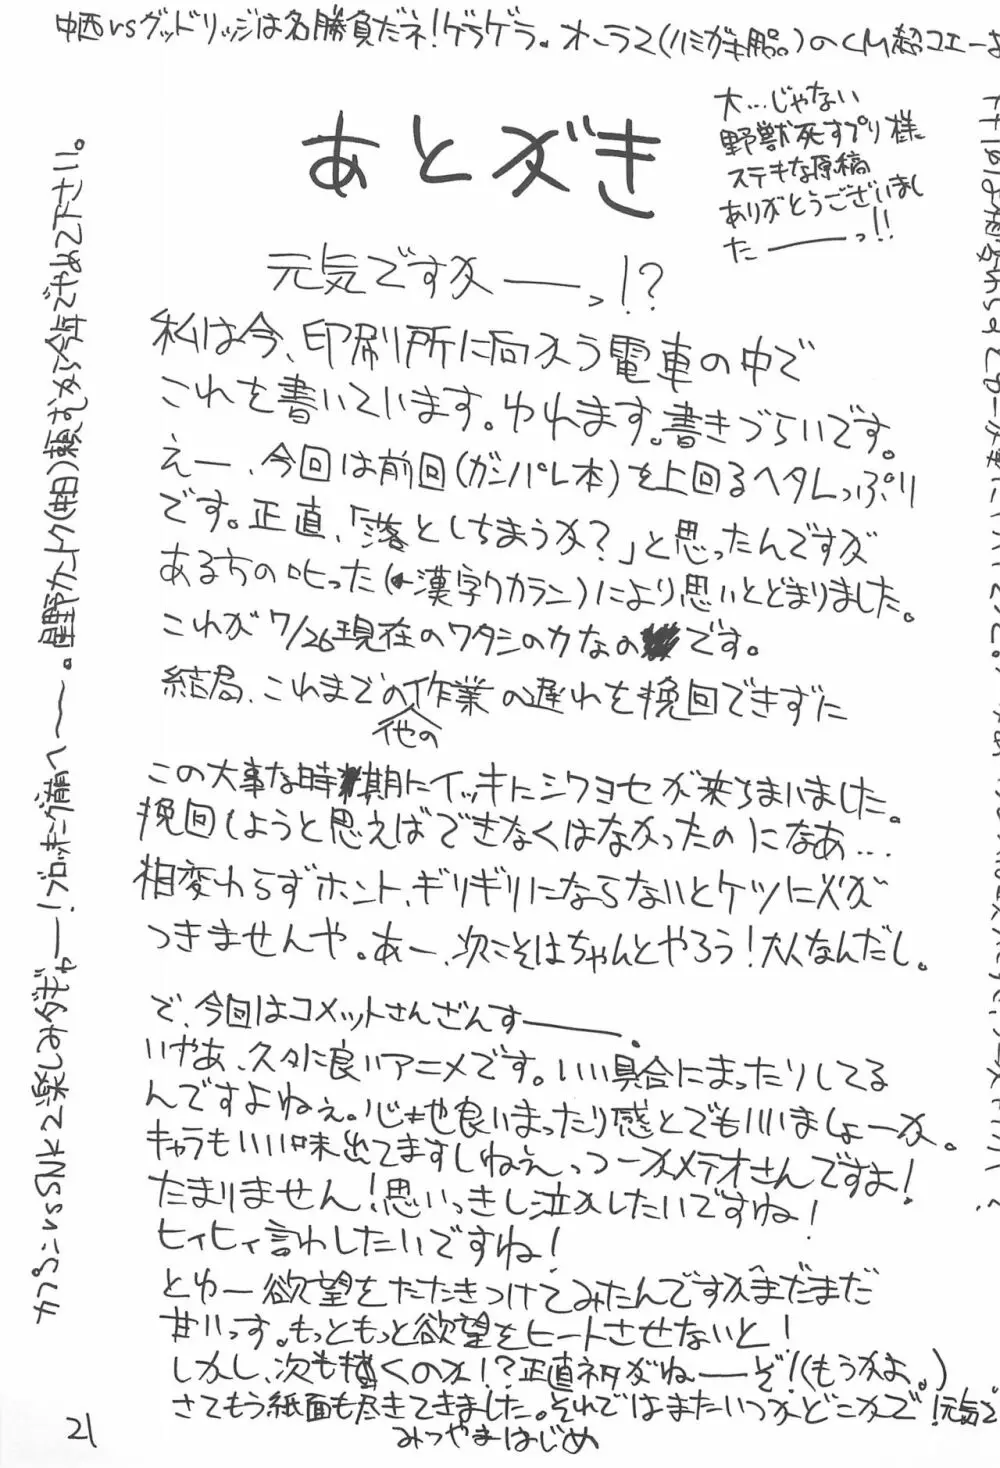 中西vsグッドリッジは名勝負だネ!ゲラゲラ。オーラ2(ハミガキ用品。)のCM超コエーよ
あとがき
大…じゃない
野獣死すプリ様
ステキな原稿
ありがとうございまし
たーーっ!!
元気ですかーーっ!?
私は今、印刷所に向かう電車の中で
これを書いています。ゆれます。書きづらいです。
えー、今回は前回(ガンパレ本)を上回るヘタレっぷり
です。正直、「落としちまうか?」と思ったんですが
ある方の叱った(←漢字ワカラン)により思いとどまりました。
これが7/26現在のワタシのカなのです。
結局、これまでの他の作業の遅れを挽回できずに
この大事な時期にイッキにシワヨセが来ちまいました。
挽回しようと思えばできなくはなかったのになあ…
相変わらずホント、ギリギリにならないとケツに火が
つきませんや。あー、次こそはちゃんとやろう!大人なんだし。
で、今回はコメットさんざんすーーー。
いやあ、久々に良いアニメです。いい具合にまったりしてる
んですよねぇ。心地良いまったり感とでもいいましょーか。
キャラもいい味出てますしねぇっつーかメテオさんですよ!
たまりません!思いっきし泣かしたいですね!
ヒィヒィ言わしたいですね!
とゆー欲望をたたきつけてみたんですがまだまだ
甘いっす。もっともっと欲望をヒートさせないと!
しかし、次も描くのか!?正直ネタがねーーぞ!(もうかよ。)
さてもう紙面も尽きてきました。それではまたいつかどこかで!元気で。
みつやまはじめ
カプコンvsSNK2楽しみダギャー!ブロッキング萌へーー。星野カントク(中日)頼むから今年でやめて下さい。
21